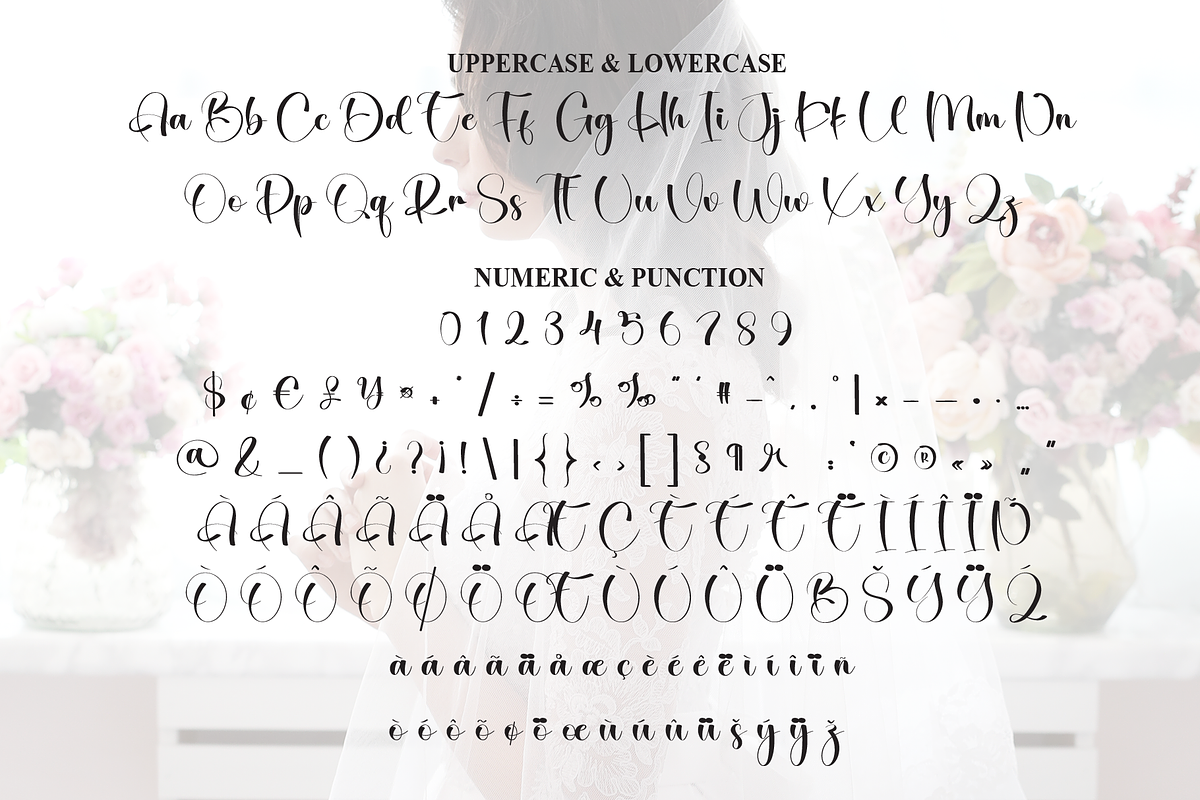 UPPERCASE & LOWERCASE
Aa Bb Cc Dd Ee Ff Gg Hh Ii Jj Kk Ll Mm Nn
Oo Pp Qq Rr Ss Tt Uu Vv Ww Xx Yy Zz
NUMERIC & PUNCTION
0 1 2 3 4 5 6 7 8 9
$ ¢ € £ ¥ ¤ + · / ÷ = % ‰ " ' # – ^ , . ° | × – — • · …
@ & _ ( ) ¿ ? ¡ ! \ | { } ‹ › [ ] § ¶ : ‘ © ® « » „ ”
À Á Â Ã Ä Å Æ Ç È É Ê Ë Ì Í Î Ï Ñ
Ò Ó Ô Õ Ø Ö Œ Ù Ú Û Ü Š Ý Ÿ
à á â ã ä å æ ç è é ê ë ì í î ï ñ
ò ó ô õ ø ö œ ù ú û ü š ý ÿ ž